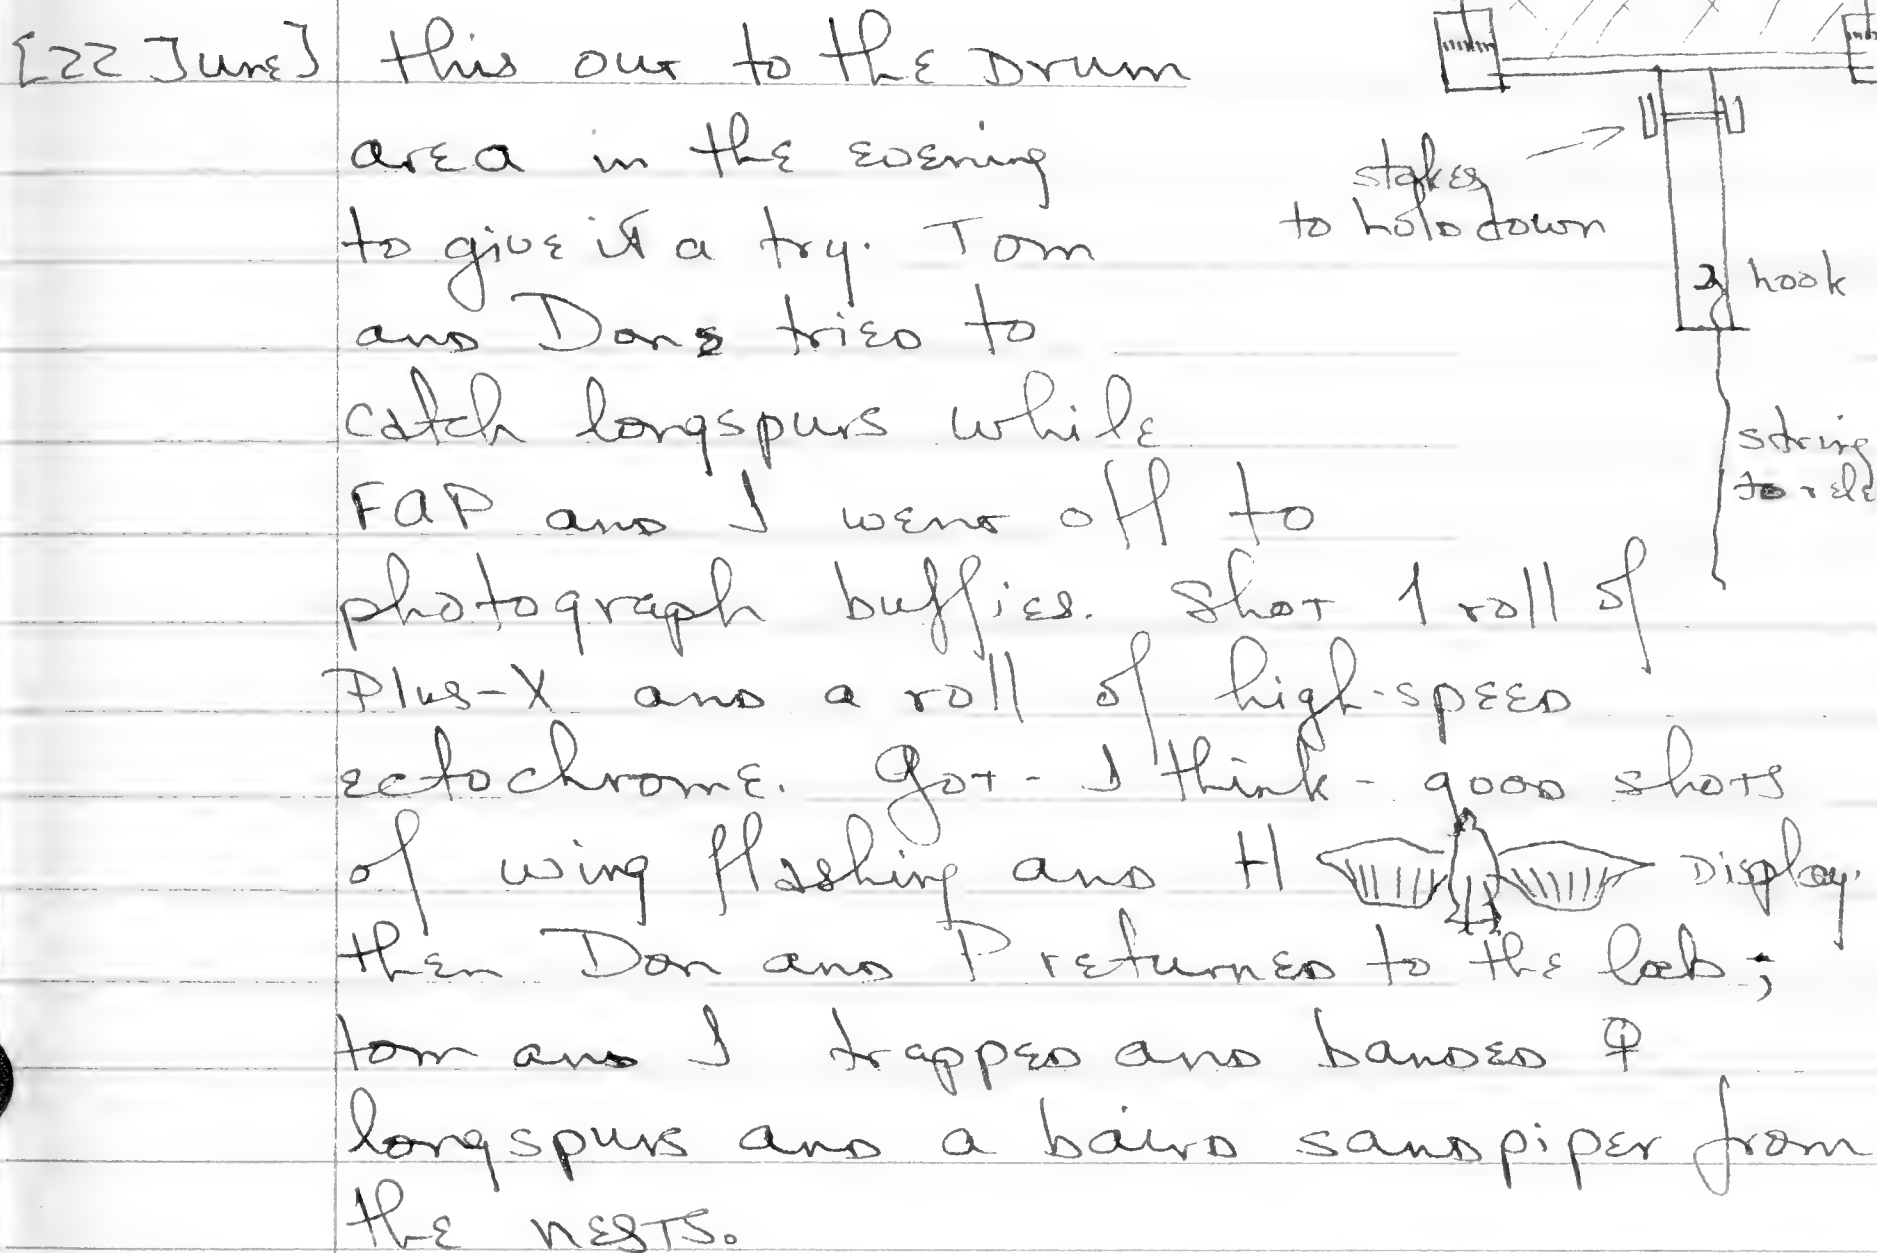 [22 June] this out to the Drum
area in the evening
to give it a try. Tom
and Dons tried to
catch longspurs while
FAP and I went off to
photograph buffies. Shot 1 roll of
Plus-X and a roll of high-speed
ectochrome. Got - I think - good shots
of wing flashing and H display.
then Don and P returned to the lab;
tom and I trapped and banded ♀
longspurs and a baird sandpiper from
the nests.
stakes
to hold down
hook
string
to rele